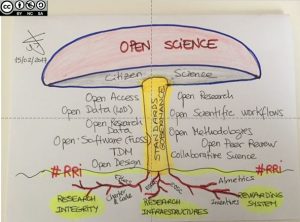 CC BY NC SA
15/02/2017
OPEN SCIENCE
Citizen Science
Open Access
Open Data (LOD)
Open Research
Data
Open Software (FLOSS)
TDM
Open Design
STANDARDS
GOVERNANCE
Open Research
Open Scientific workflows
Open Methodologies
Open Peer Review
Collaborative Science
#RRi
#RRi
Altmetrics
Incentives
RESEARCH
INTEGRITY
RESEARCH
INFRASTRUCTURES
REWARDING
SYSTEM